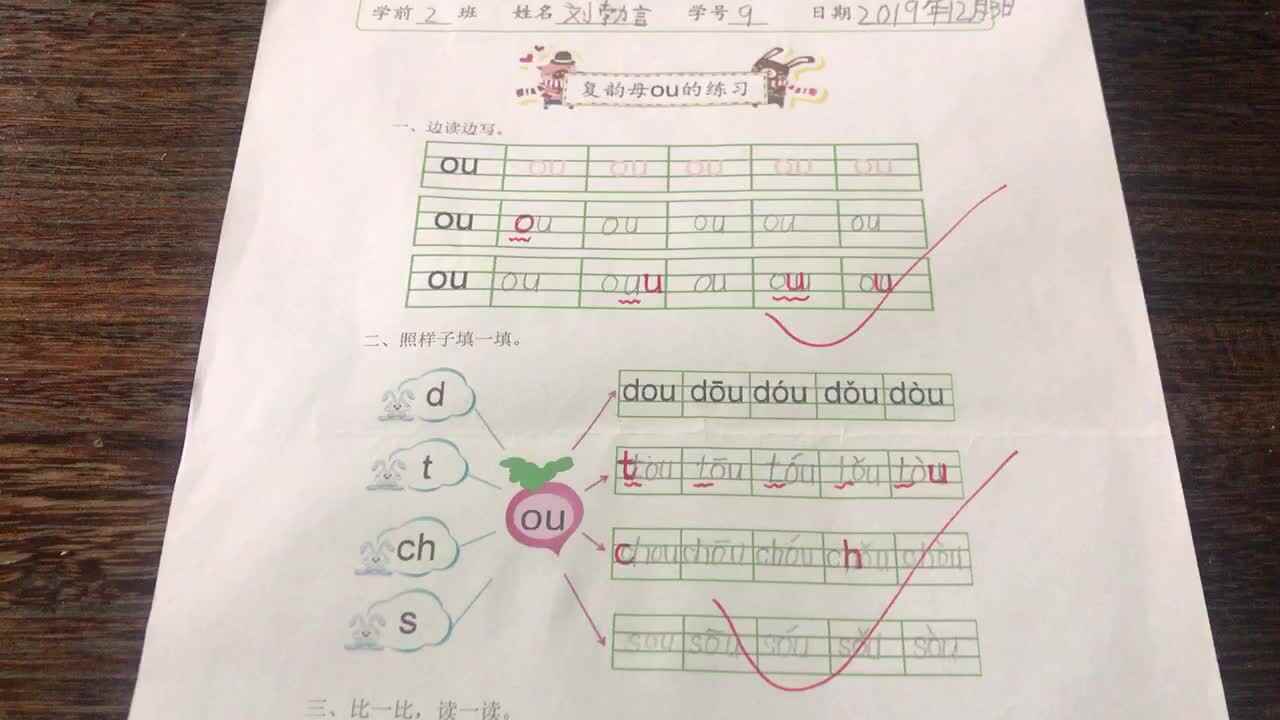 学前 2 班 姓名 刘勃言 学号 9 日期 2019年12月3日
复韵母ou的练习
一、边读边写。
ou ou ou ou ou ou
ou ou ou ou ou ou
ou ou ouu ou ou ou
二、照样子填一填。
d
dou dōu dóu dǒu dòu
t
tou tōu tóu tǒu tòu
ou
ch
chou chōu chóu chǒu chòu
s
sou sōu sóu sǒu sòu
三、比一比，读一读。